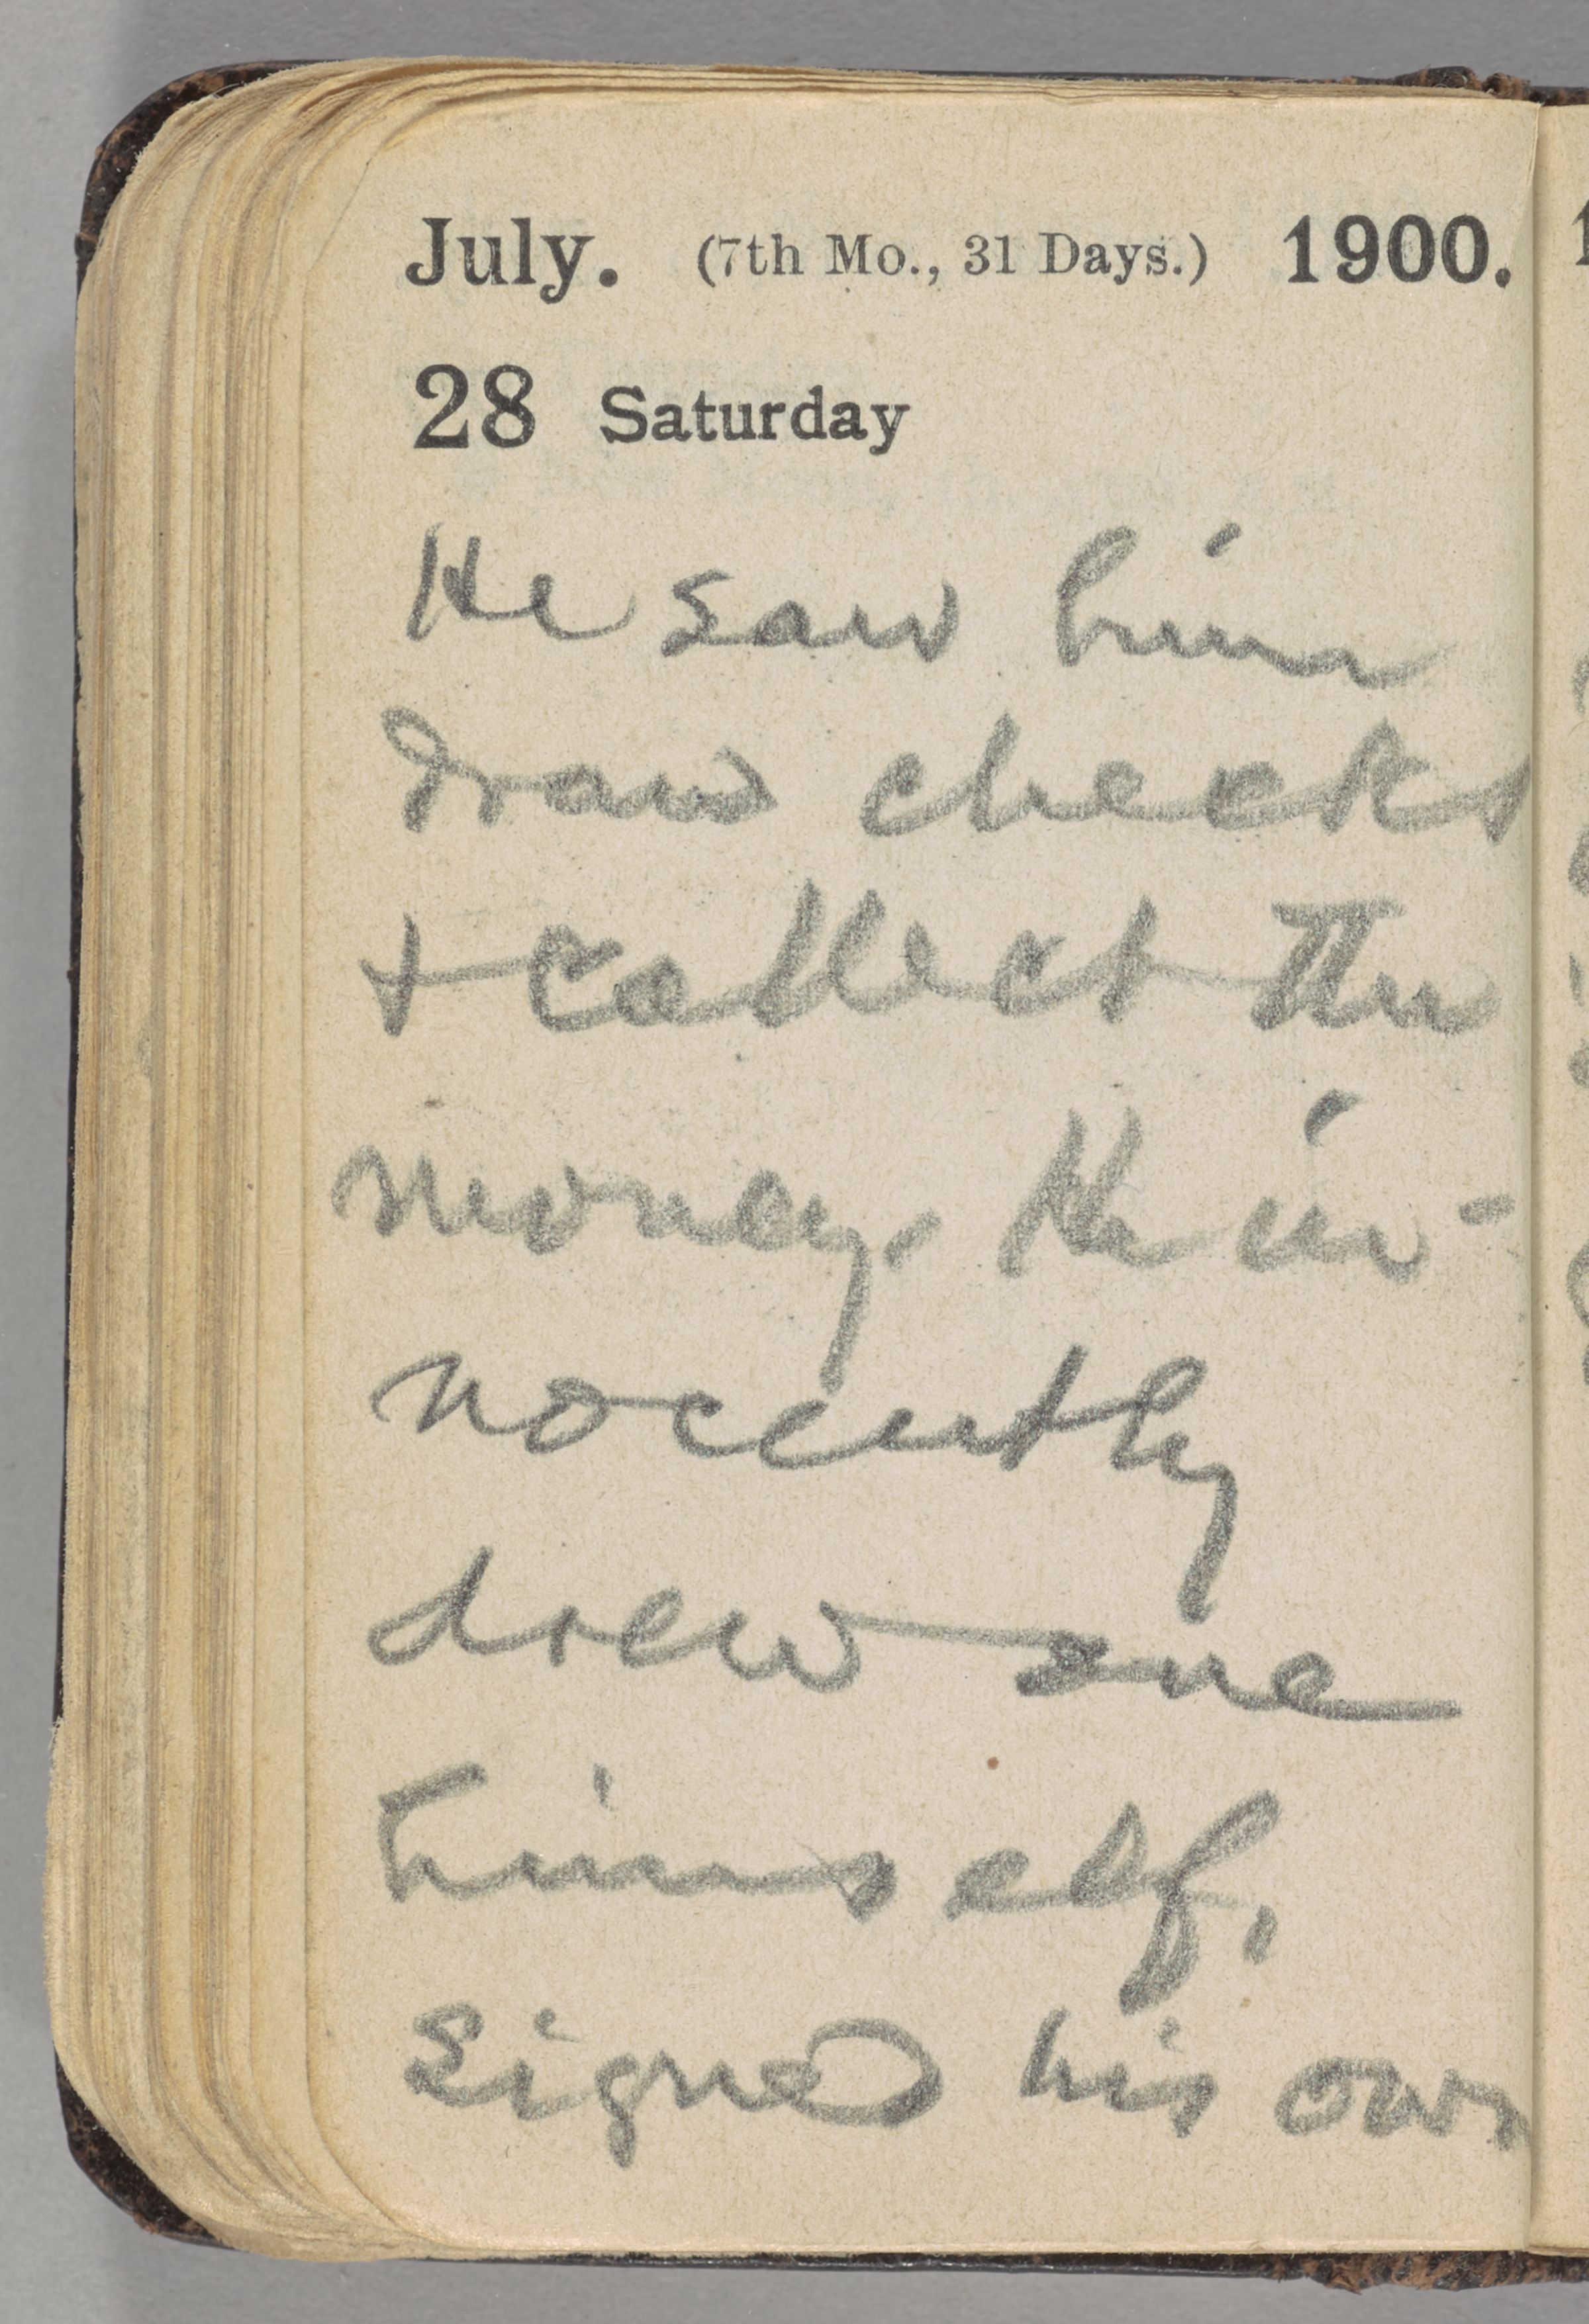 July. (7th Mo., 31 Days.) 1900.
28 Saturday
He saw him
draw checks
+ collect the
money. He in-
nocently
drew one
himself,
signed his own